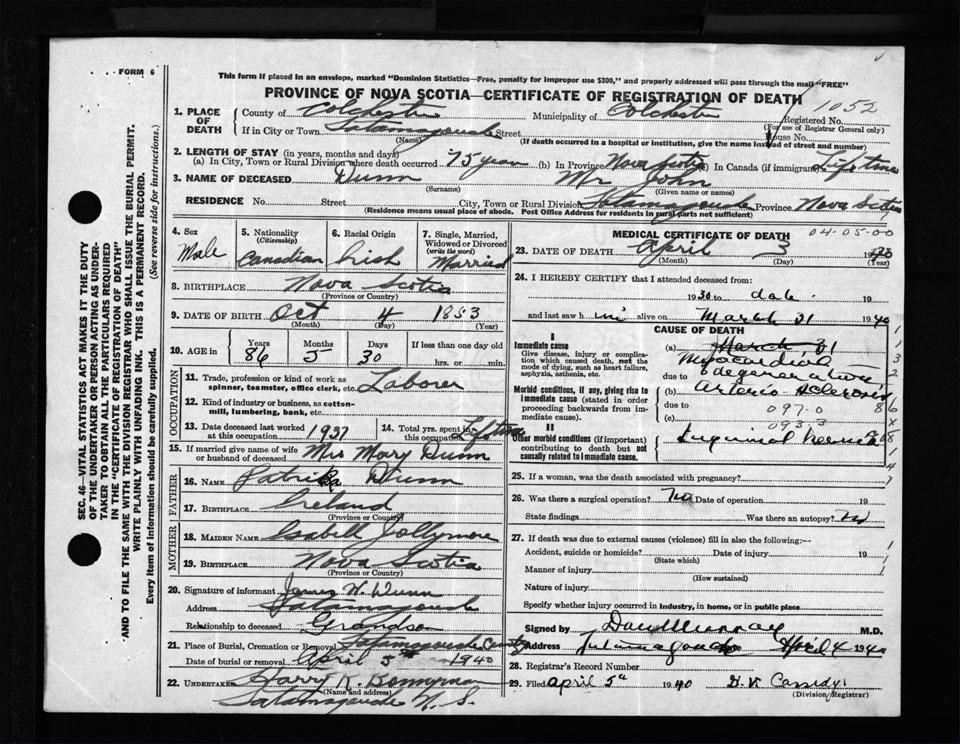 FORM 6
This form if placed in an envelope, marked "Dominion Statistics—Free, penalty for improper use $300," and properly addressed will pass through the mail "FREE"
PROVINCE OF NOVA SCOTIA—CERTIFICATE OF REGISTRATION OF DEATH
1052
1. PLACE OF DEATH County of Colchester Municipality of Colchester Registered No.
(For use of Registrar General only)
If in City or Town Tatamagouche Street House No.
(Name) (If death occurred in a hospital or institution, give the name instead of street and number)
2. LENGTH OF STAY (in years, months and days)
(a) In City, Town or Rural Division where death occurred 75 years (b) In Province Nova Scotia (c) In Canada (if immigrant) Lifetime
3. NAME OF DECEASED Dunn Mr. John
(Surname) (Given name or names)
RESIDENCE No. Street City, Town or Rural Division Tatamagouche Province Nova Scotia
(Residence means usual place of abode. Post Office Address for residents in rural parts not sufficient)
4. Sex Male
5. Nationality (Citizenship) Canadian
6. Racial Origin Irish
7. Single, Married, Widowed or Divorced (write the word) Married
8. BIRTHPLACE Nova Scotia
(Province or Country)
9. DATE OF BIRTH Oct 4 1853
(Month) (Day) (Year)
10. AGE in Years Months Days If less than one day old
86 5 30 hrs. or min.
OCCUPATION
11. Trade, profession or kind of work as spinner, teamster, office clerk, etc. Laborer
12. Kind of industry or business, as cotton-mill, lumbering, bank, etc.
13. Date deceased last worked at this occupation 1937
14. Total yrs. spent in this occupation Lifetime
15. If married give name of wife or husband of deceased Mrs Mary Dunn
FATHER
16. NAME Patrick Dunn
17. BIRTHPLACE Ireland
(Province or Country)
MOTHER
18. MAIDEN NAME Isabell Jollymore
19. BIRTHPLACE Nova Scotia
(Province or Country)
20. Signature of informant James W. Dunn
Address Tatamagouche
Relationship to deceased Grandson
21. Place of Burial, Cremation or Removal Tatamagouche
Date of burial or removal April 5th 1940
22. UNDERTAKER Harry R. Bonnyman
(Name and address)
Tatamagouche N. S.
MEDICAL CERTIFICATE OF DEATH
04-05-00
23. DATE OF DEATH April 3 1940
(Month) (Day) (Year)
24. I HEREBY CERTIFY that I attended deceased from:
1930 to date 19
and last saw him alive on March 31 1940
CAUSE OF DEATH
I
Immediate cause
Give disease, injury or complication which caused death, not the mode of dying, such as heart failure, asphyxia, asthenia, etc.
(a) March 31
Myocardial
due to degeneration
Morbid conditions, if any, giving rise to immediate cause (stated in order proceeding backwards from immediate cause).
(b) Arterio Sclerosis
due to 097.0
(c) 093.3
II
Other morbid conditions (if important) contributing to death but not causally related to immediate cause.
Inguinal hernia
25. If a woman, was the death associated with pregnancy?
26. Was there a surgical operation? No Date of operation 19
State findings Was there an autopsy? No
27. If death was due to external causes (violence) fill in also the following:—
Accident, suicide or homicide? Date of injury 19
(State which)
Manner of injury
(How sustained)
Nature of injury
Specify whether injury occurred in industry, in home, or in public place
Signed by Dan Murray M.D.
Address Tatamagouche April 4 1940
28. Registrar's Record Number
29. Filed April 5th 1940 H. V. Cassidy
(Division Registrar)
SEC. 46—VITAL STATISTICS ACT MAKES IT THE DUTY OF THE UNDERTAKER OR PERSON ACTING AS UNDERTAKER TO OBTAIN ALL THE PARTICULARS REQUIRED IN THE "CERTIFICATE OF REGISTRATION OF DEATH"
AND TO FILE THE SAME WITH THE DIVISION REGISTRAR WHO SHALL ISSUE THE BURIAL PERMIT.
WRITE PLAINLY WITH UNFADING INK. THIS IS A PERMANENT RECORD.
Every item of information should be carefully supplied. (See reverse side for instructions.)